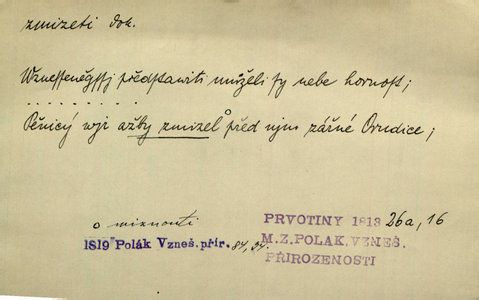 zmizeti dok.
Wznessenėgssj představiti můželi sy nebe hornost;
. . . . . . . . .
Pěnicý wjr ažby zmizel° před njm zářné Orudice;
o miznouti
1819 Polák Vzneš. přír. 84, 24.
PRVOTINY 1813 26a, 16
M. Z. POLAK, VZNEŠ.
PŘIROZENOSTI